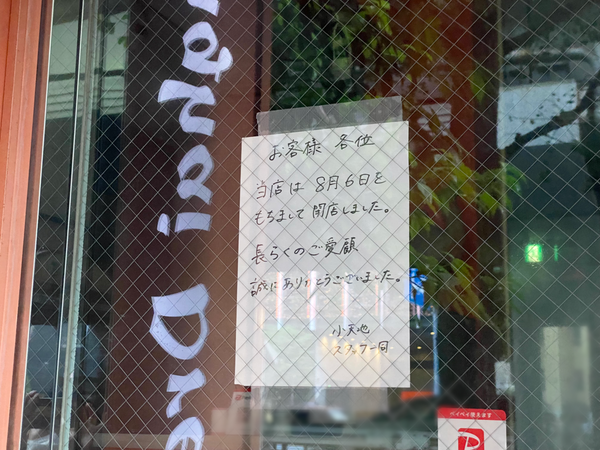 お客様 各位
当店は 8月6日を
もちまして 閉店しました。
長らくのご愛顧
誠にありがとうございました。
小天地
スタッフ一同
ペイペイ使えます
P